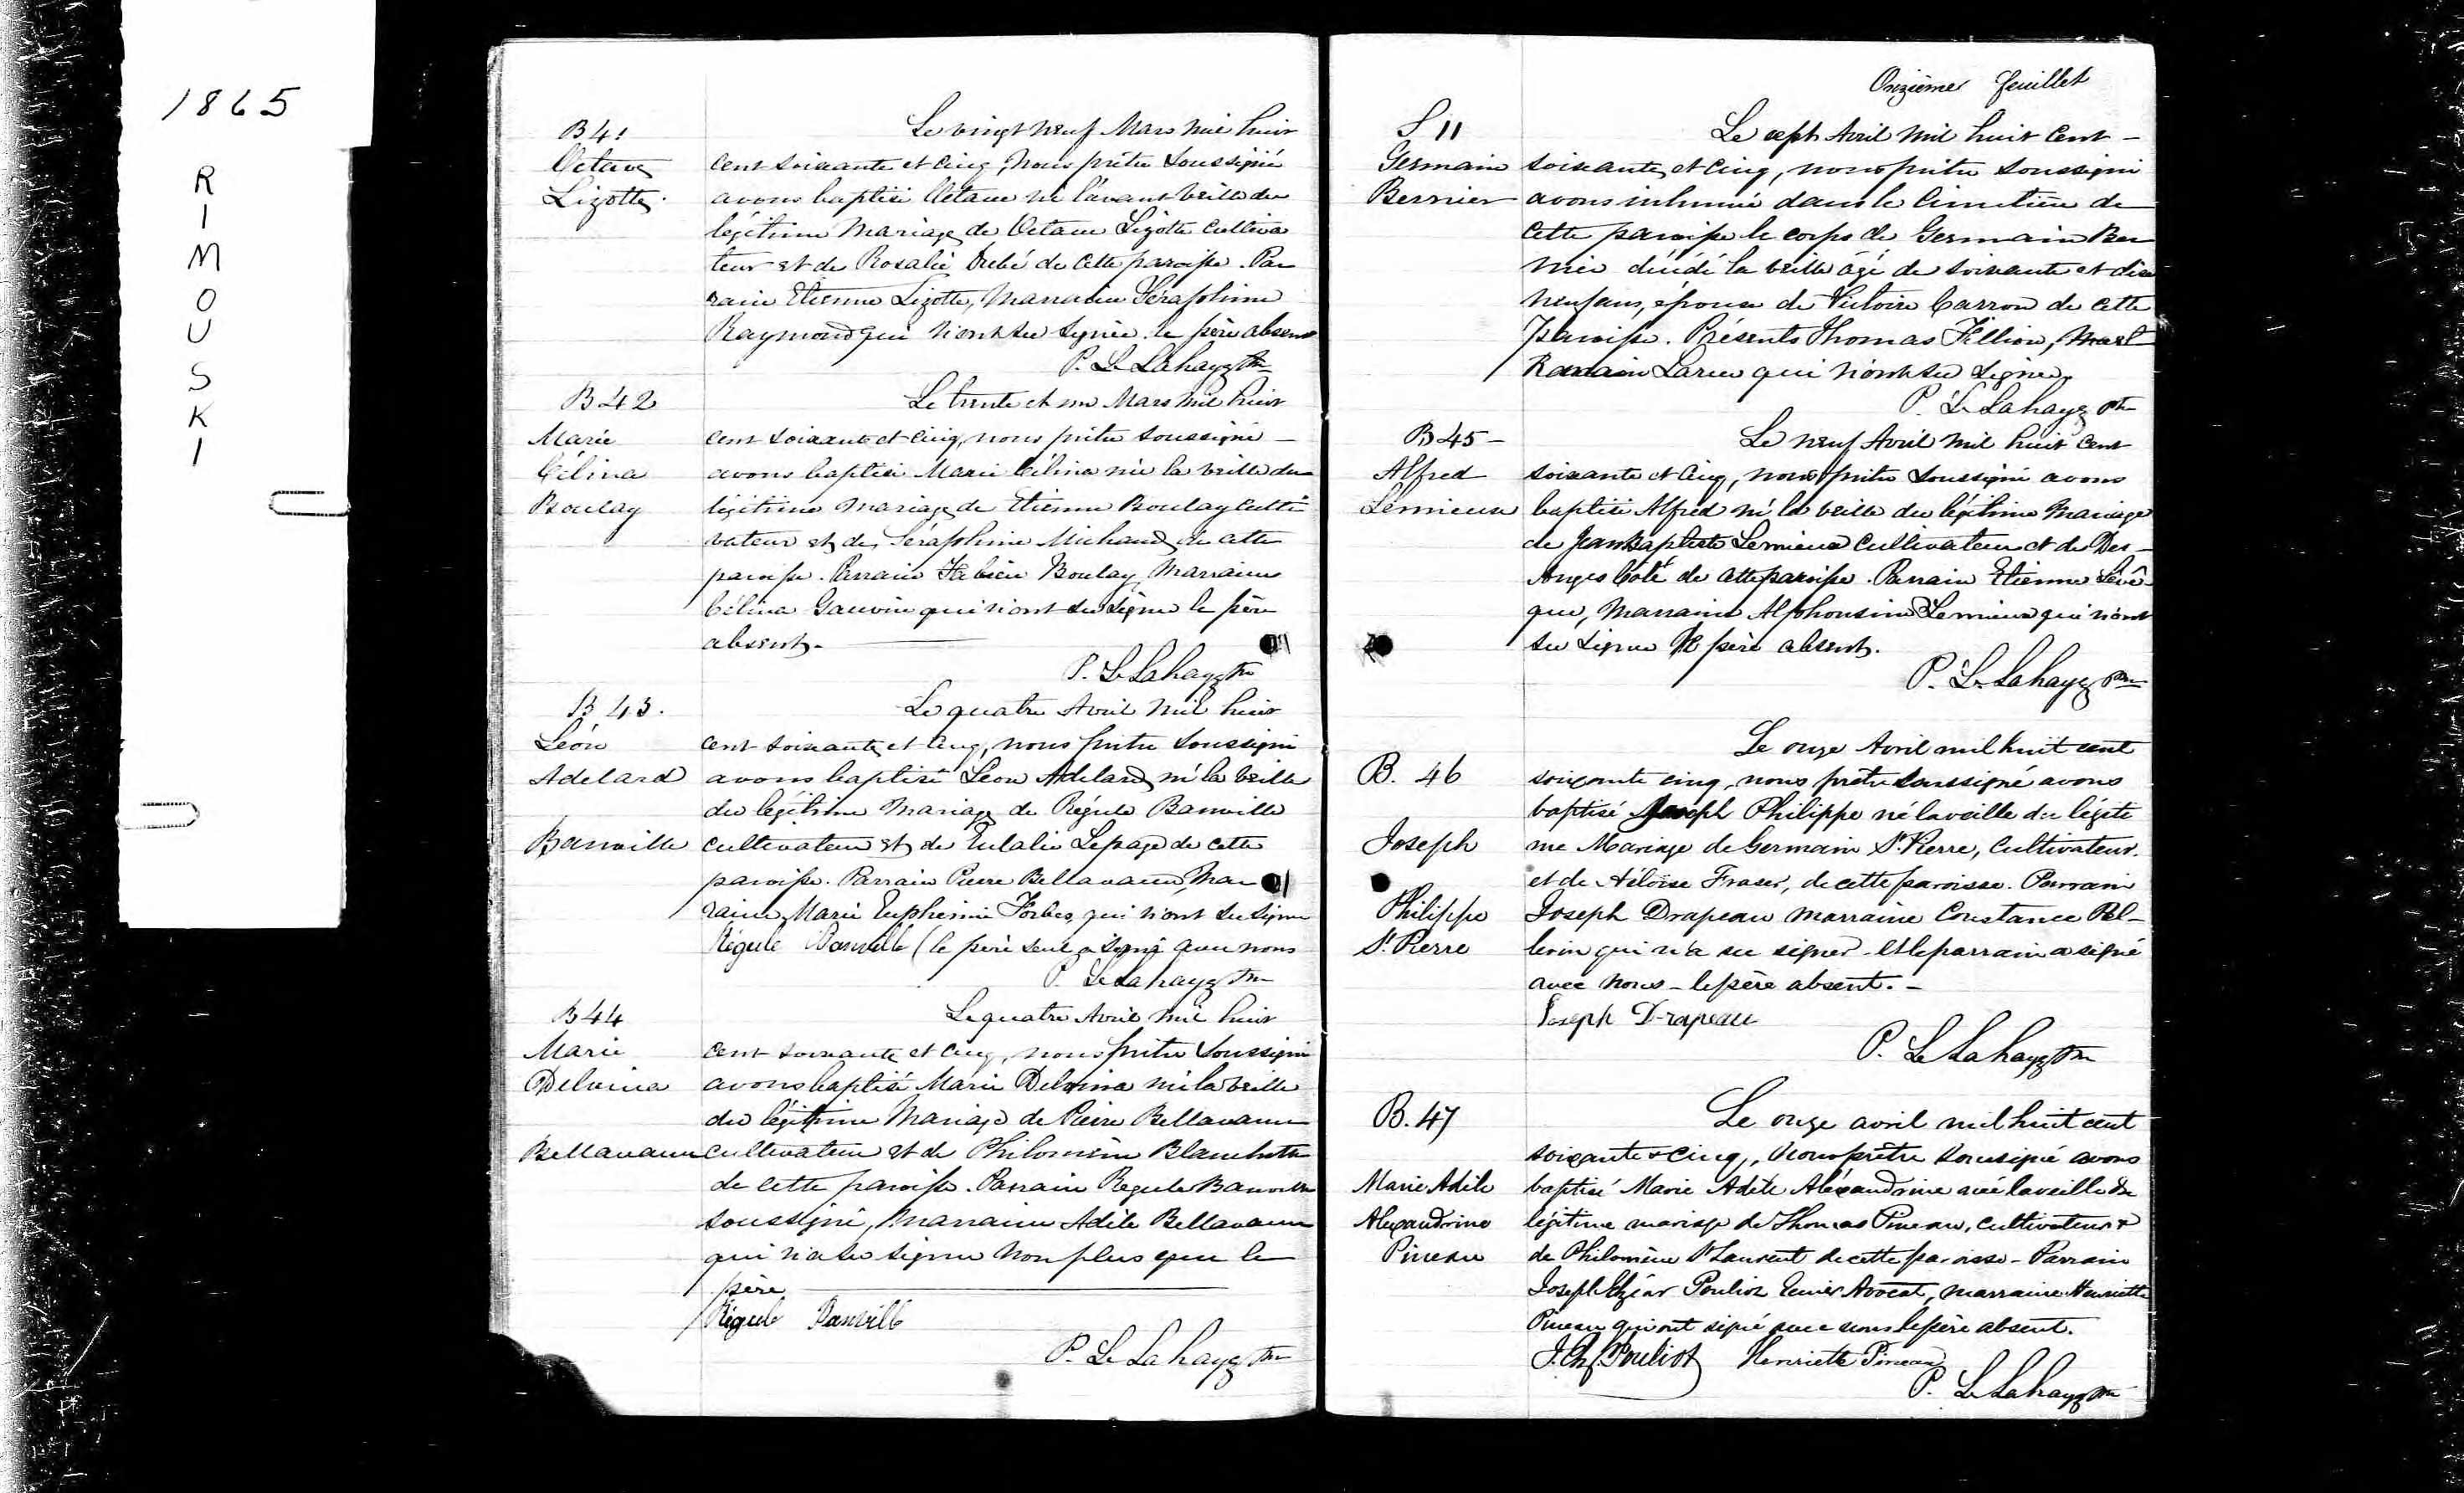 1865
RIMOUSKI
B 41
Octave
Lizotte.
Le vingt neuf Mars mil huit
cent soixante et cinq, nous prêtre soussigné
avons baptisé Octave né l'avant veille du
légitime mariage de Octave Lizotte cultiva
teur et de Rosalie Dubé de cette paroisse. Par
rain Etienne Lizotte, marraine Séraphine
Raymond qui n'ont su signer. le père absent
P. L. Lahaye Ptre
B 42
Marie
Célina
Boulay
Le trente et un Mars mil huit
cent soixante et cinq, nous prêtre soussigné
avons baptisé Marie Célina née la veille du
légitime mariage de Etienne Boulay culti
vateur et de Séraphine Michaud de cette
paroisse. Parrain Fabien Boulay, Marraine
Célina Gauvin qui n'ont su signer le père
absent.
P. L. Lahaye Ptre
B 43.
Léon
Adelard
Banville
Le quatre Avril mil huit
cent soixante et cinq, nous prêtre soussigné
avons baptisé Léon Adelard né la veille
du légitime mariage de Régule Banville
cultivateur et de Eulalie Lepage de cette
paroisse. Parrain Pierre Bellavance, Mar
raine Marie Euphemie Forbes, qui n'ont su signer
Régule Banville (le père seul a signé avec nous
P. L. Lahaye Ptre
B 44
Marie
Delvina
Bellavance
Le quatre Avril mil huit
cent soixante et cinq, nous prêtre soussigné
avons baptisé Marie Delvina née la veille
du légitime mariage de Pierre Bellavance
cultivateur et de Philomène Blanchette
de cette paroisse. Parrain Regule Banville
soussigné, Marraine Adèle Bellavance
qui n'a su signer non plus que le
père
Régule Banville
P. L. Lahaye Ptre
Onzième feuillet
S 11
Germain
Bernier
Le sept Avril mil huit cent -
soixante et cinq, nous prêtre soussigné
avons inhumé dans le cimetière de
cette paroisse le corps de Germain Ber
nier décédé la veille âgé de soixante et dix
neuf ans, époux de Victoire Carron de cette
paroisse. Présents Thomas Fillion,
Romain Larue qui n'ont su signer.
P. L. Lahaye Ptre
B 45 -
Alfred
Lemieux
Le neuf Avril mil huit cent
soixante et cinq, nous prêtre soussigné avons
baptisé Alfred né la veille du légitime mariage
de Jean Baptiste Lemieux cultivateur et de Des
Anges Côté de cette paroisse. Parrain Etienne Levê-
que, Marraine Alphonsine Lemieux qui n'ont
su signer le père absent.
P. L. Lahaye Ptre
B. 46
Joseph
Philippe
St. Pierre
Le onze Avril mil huit cent
soixante cinq, nous prêtre soussigné avons
baptisé Joseph Philippe né la veille du légite
me Mariage de Germain St. Pierre, Cultivateur.
et de Héloïse Fraser, de cette paroisse. Parrain
Joseph Drapeau marraine Constance Pel-
lerin qui n'a su signer - et le parrain a signé
avec nous - le père absent. -
Joseph Drapeau
P. L. Lahaye Ptre
B. 47
Marie Adèle
Alexandrine
Pineau
Le onze avril mil huit cent
soixante & cinq, nous prêtre soussigné avons
baptisé Marie Adèle Alexandrine née la veille du
légitime mariage de Thomas Pineau, cultivateur &
de Philomène St Laurent de cette paroisse - Parrain
Joseph Elzéar Pouliot Ecuier Avocat, marraine Henriette
Pineau qui ont signé avec nous le père absent.
J. Elz. Pouliot Henriette Pineau
P. L. Lahaye Ptre